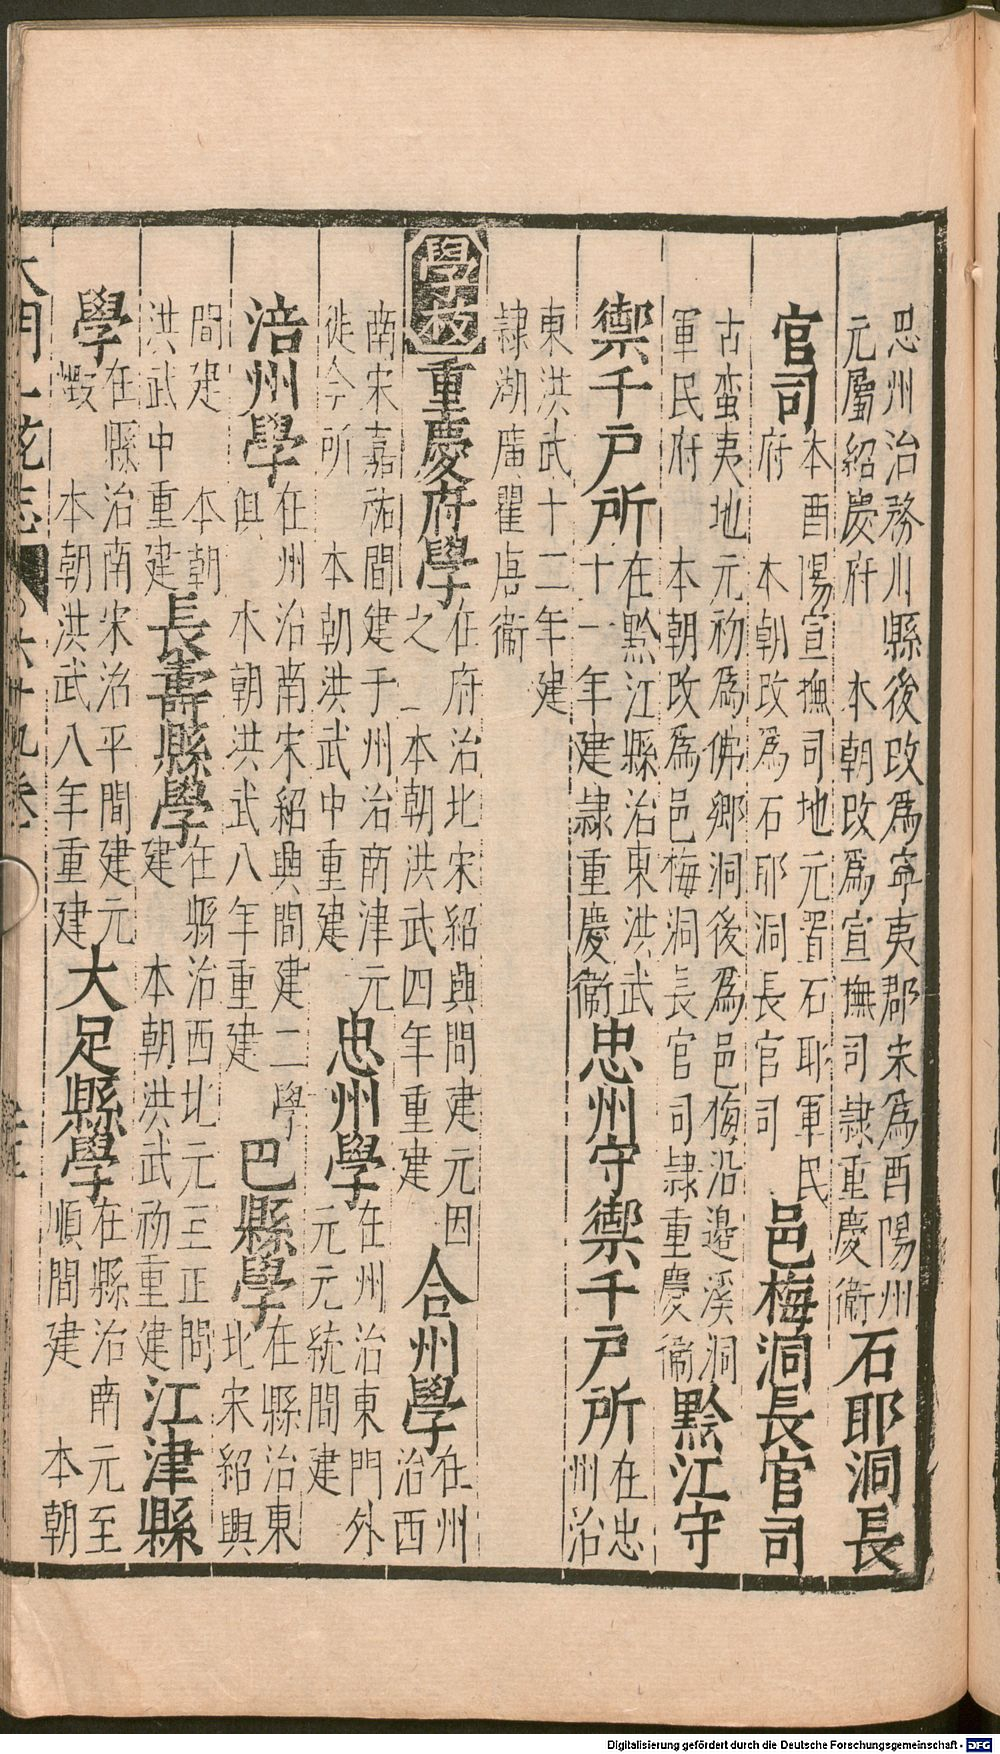 思州治務川縣後改爲寧夷郡宋爲酉陽州
元屬紹慶府　本朝改爲宣撫司隷重慶衞石耶洞長
官司本酉陽宣撫司地元置石耶軍民
府　本朝改爲石耶洞長官司邑梅洞長官司
古蛮夷地元初爲佛鄉洞後爲邑梅沿邊溪洞
軍民府　本朝改爲邑梅洞長官司隷重慶衞黔江守
禦千戸所在黔江縣治東洪武
十一年建隷重慶衞忠州守禦千戸所在忠
州治
東洪武十二年建
隷湖廣瞿唐衞
學校重慶府學在府治北宋紹興間建元因
之　本朝洪武四年重建合州學在州
治西
南宋嘉祐間建于州治南津元
徙今所　本朝洪武中重建忠州學在州治東門外
元元統間建
涪州學在州治南宋紹興間建二學
俱　本朝洪武八年重建巴縣學在縣治東
北宋紹興
間建　本朝
洪武中重建長壽縣學在縣治西北元至正間
建　本朝洪武初重建江津縣
學在縣治南宋治平間建元
燬　本朝洪武八年重建大足縣學在縣治南元至
順間建　本朝
大明一統志
六十九卷
Digitalisierung gefördert durch die Deutsche Forschungsgemeinschaft - DFG